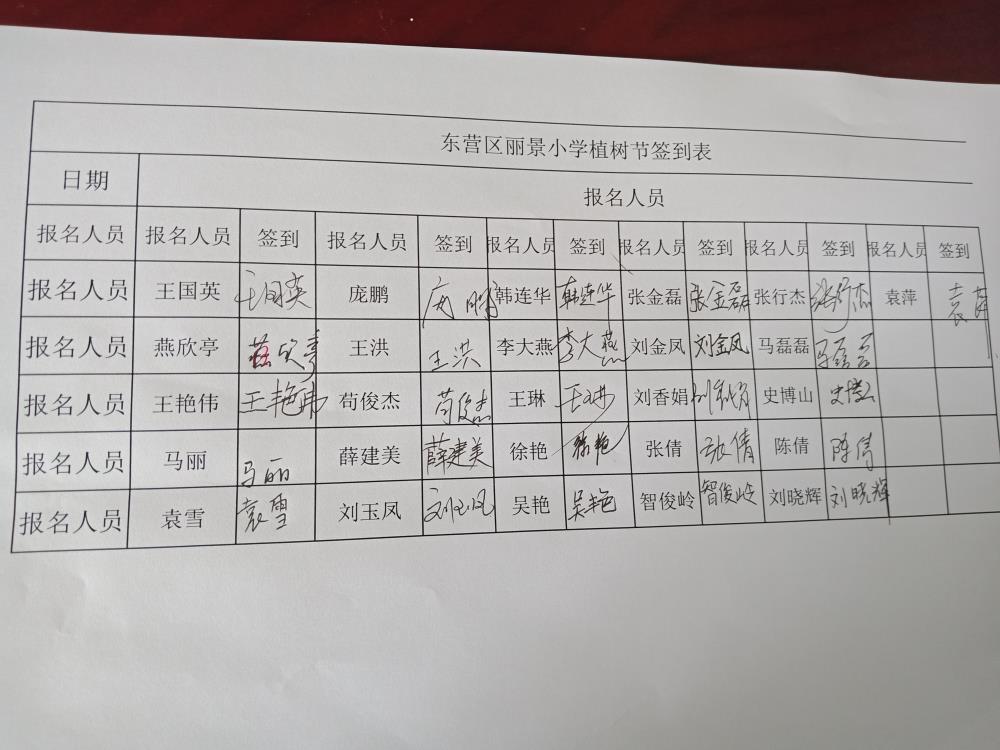 东营区丽景小学植树节签到表
日期 报名人员
报名人员 报名人员 签到 报名人员 签到 报名人员 签到 报名人员 签到 报名人员 签到 报名人员 签到
报名人员 王国英 王国英 庞鹏 庞鹏 韩连华 韩连华 张金磊 张金磊 张行杰 张行杰 袁萍 袁萍
报名人员 燕欣亭 燕欣亭 王洪 王洪 李大燕 李大燕 刘金凤 刘金凤 马磊磊 马磊磊
报名人员 王艳伟 王艳伟 苟俊杰 苟俊杰 王琳 王琳 刘香娟 刘香娟 史博山 史博山
报名人员 马丽 马丽 薛建美 薛建美 徐艳 徐艳 张倩 张倩 陈倩 陈倩
报名人员 袁雪 袁雪 刘玉凤 刘玉凤 吴艳 吴艳 智俊岭 智俊岭 刘晓辉 刘晓辉